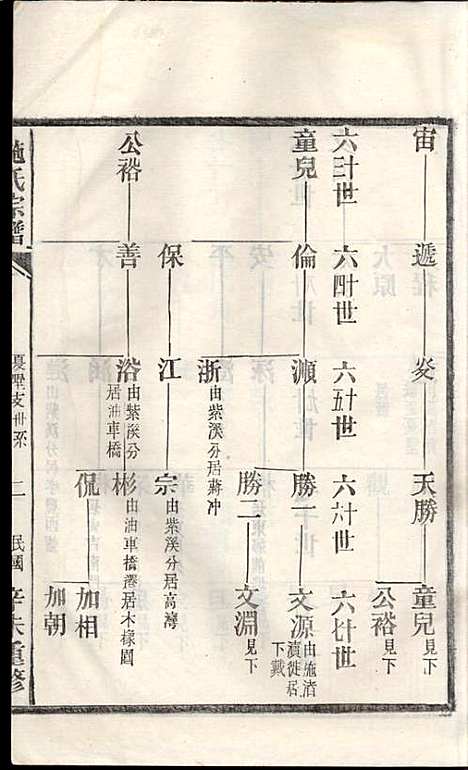 宙
遞
炎
天勝
童兒見下
公裕見下
六三十世
六四十世
六五十世
六六十世
六七十世
童兒
倫
瀕
勝一
文源由施渚瀆徙居下戴
勝二
文淵見下
浙由紫溪分居蔣冲
保
江
宗由紫溪分居高灣
公裕
善
浴由紫溪分居油車橋
彬由油車橋遷居木樣園
侃
加相
加朝
施氏宗譜
二
民國辛未重修